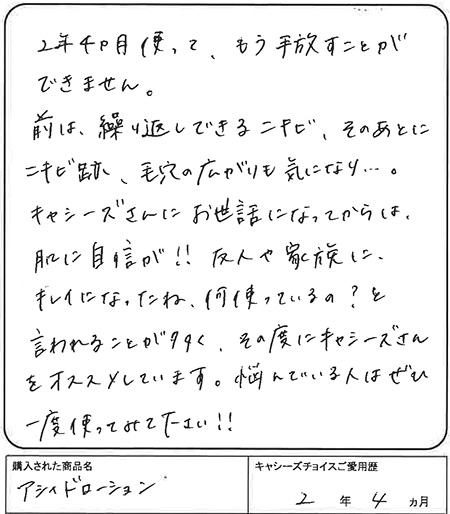 2年4カ月使って、もう手放すことが
できません。
前は、繰り返しできるニキビ、そのあとに
ニキビ跡、毛穴の広がりも気になり…。
キャシーズさんにお世話になってからは、
肌に自信が!!友人や家族に、
キレイになったね、何使っているの?と
言われることが多く、その度にキャシーズさん
をオススメしています。悩んでいる人はぜひ
一度使ってみて下さい!!
購入された商品名
アシィドローション
キャシーズチョイスご愛用歴
2年4ヵ月